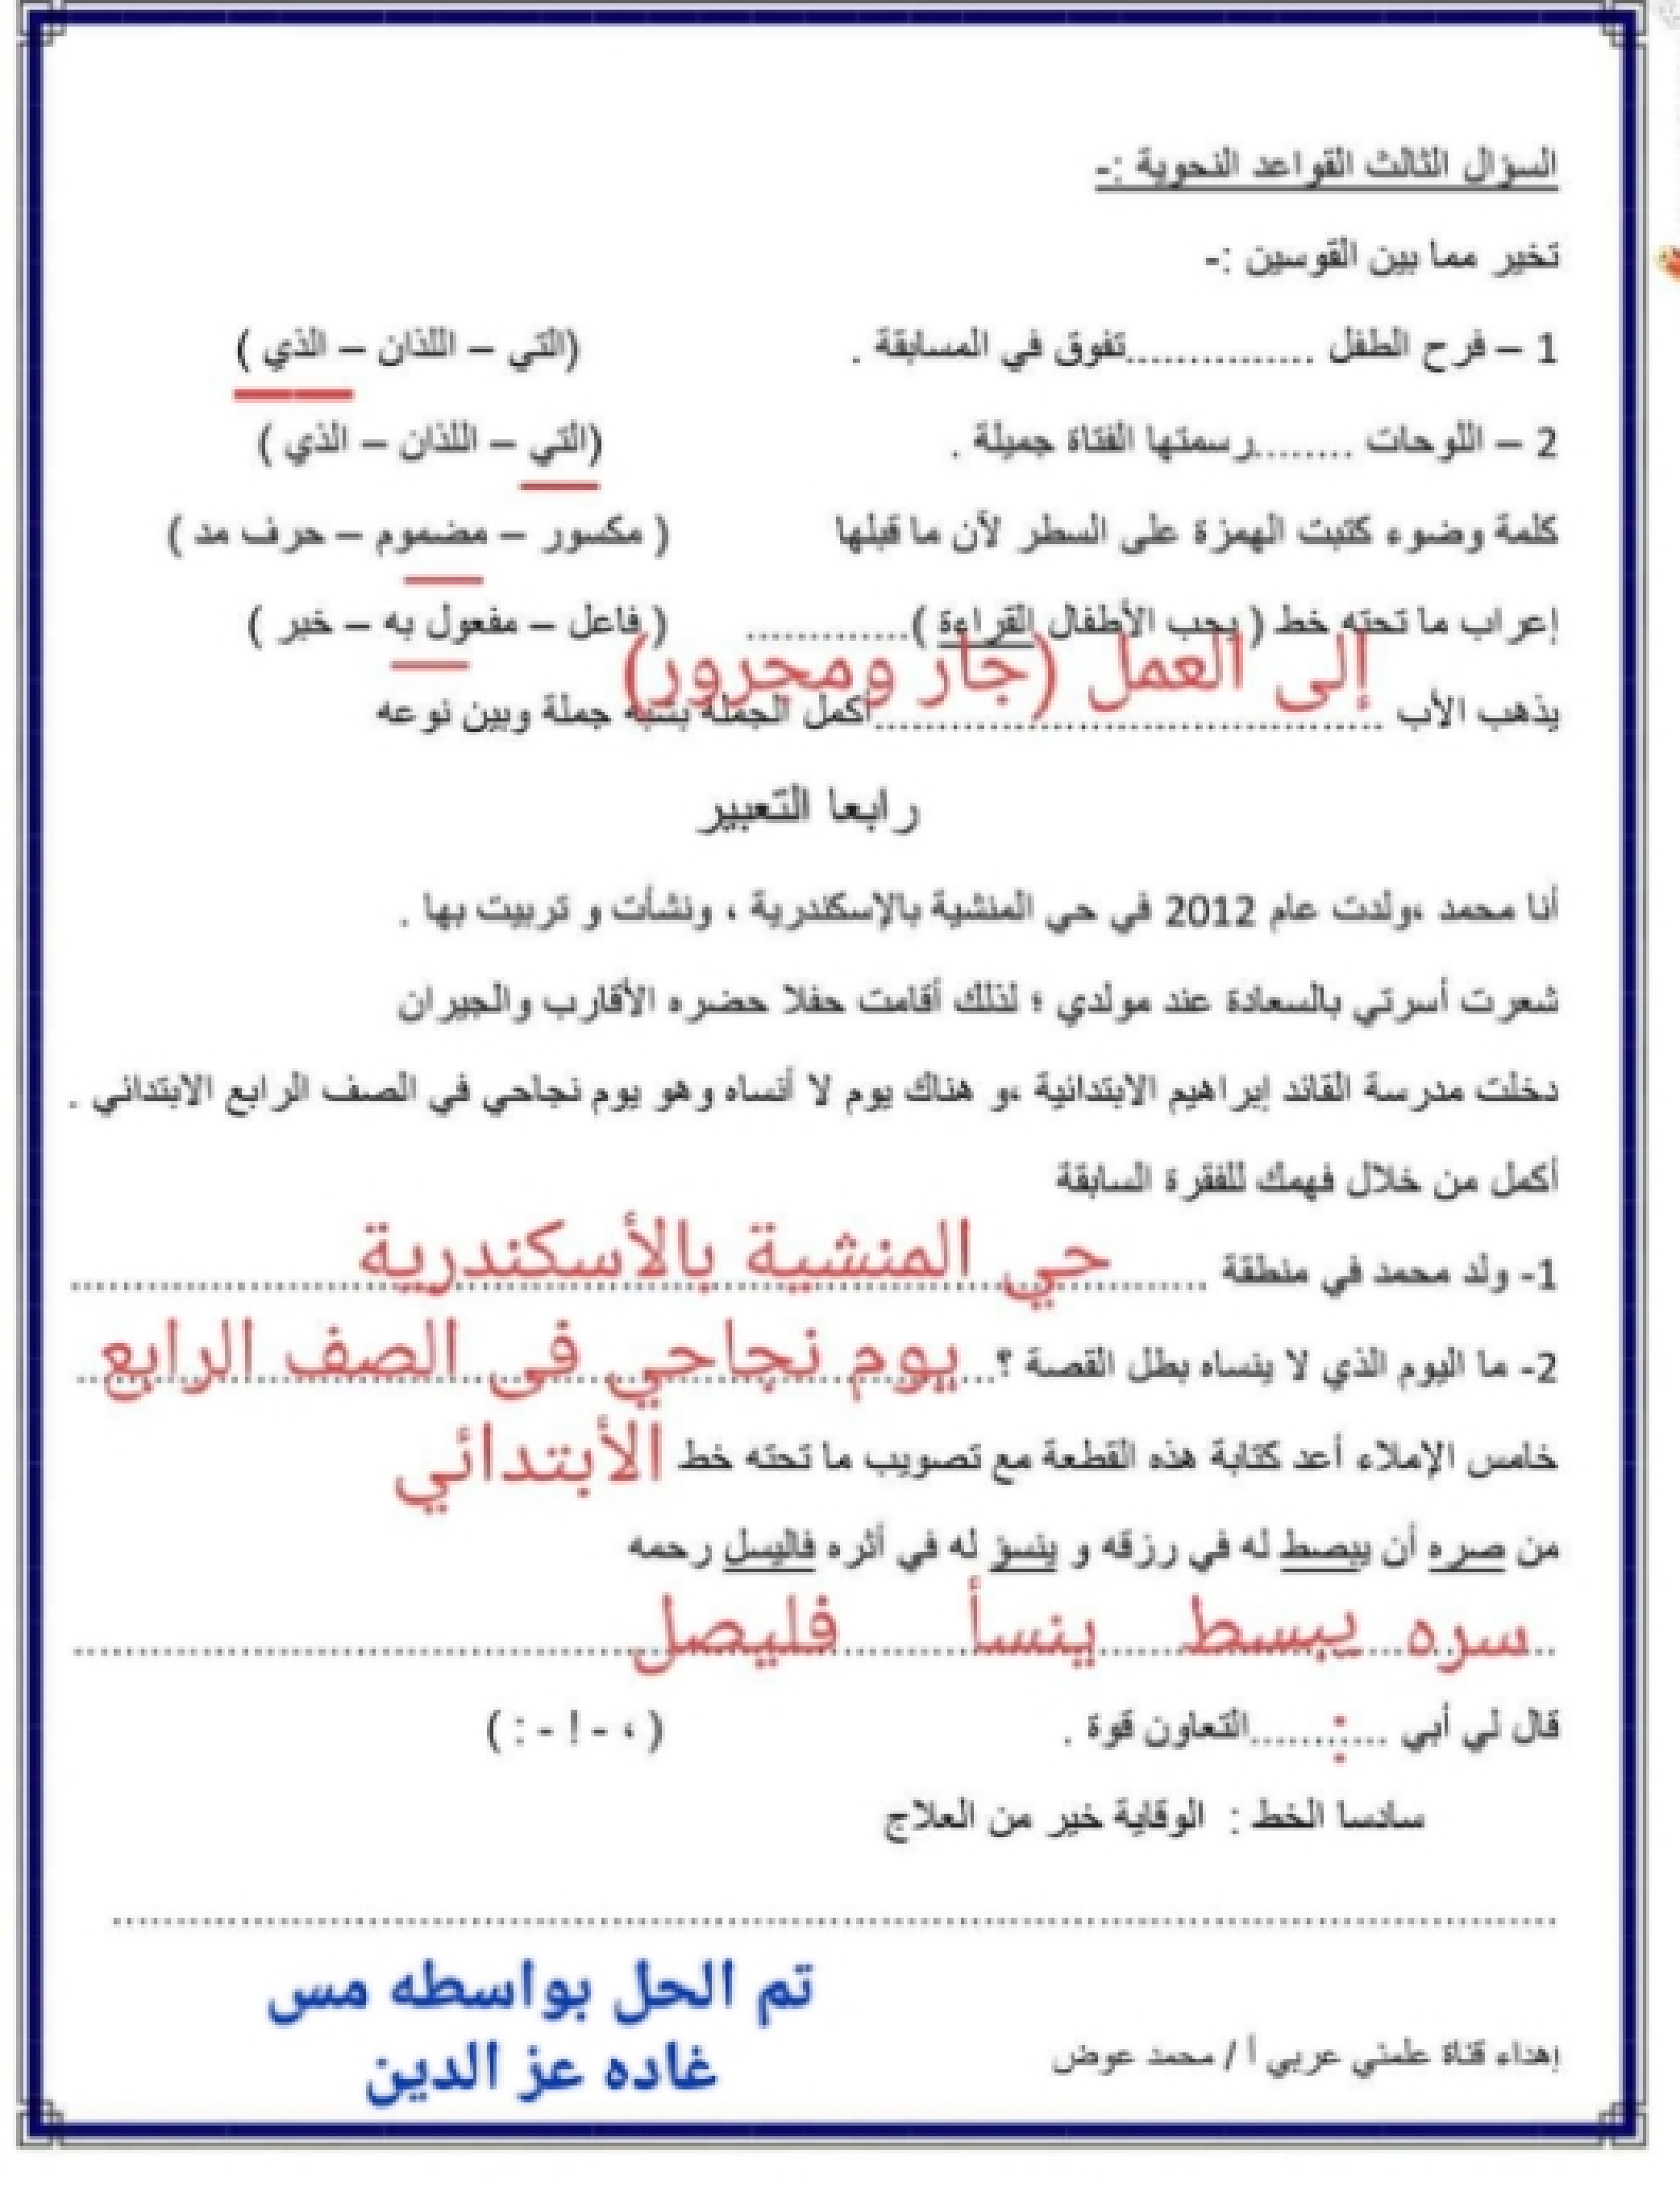 السؤال الثالث القواعد النحوية :-
تخير مما بين القوسين :-
1 – فرح الطفل ...............تفوق في المسابقة . (التي – اللذان – الذي )
2 – اللوحات ........رسمتها الفتاة جميلة . (التي – اللذان – الذي )
كلمة وضوء كتبت الهمزة على السطر لأن ما قبلها ( مكسور – مضموم – حرف مد )
إعراب ما تحته خط ( يحب الأطفال القراءة )............. ( فاعل – مفعول به – خبر )
إلى العمل (جار ومجرور)
يذهب الأب ........................................أكمل الجملة بشبه جملة وبين نوعه
رابعا التعبير
أنا محمد ،ولدت عام 2012 في حي المنشية بالإسكندرية ، ونشأت و تربيت بها .
شعرت أسرتي بالسعادة عند مولدي ؛ لذلك أقامت حفلا حضره الأقارب والجيران
دخلت مدرسة القائد إبراهيم الابتدائية ،و هناك يوم لا أنساه وهو يوم نجاحي في الصف الرابع الابتدائي .
أكمل من خلال فهمك للفقرة السابقة
1- ولد محمد في منطقة حي المنشية بالأسكندرية
2- ما اليوم الذي لا ينساه بطل القصة ؟ يوم نجاحي فى الصف الرابع
خامس الإملاء أعد كتابة هذه القطعة مع تصويب ما تحته خط الأبتدائي
من صره أن يبصط له في رزقه و ينسؤ له في أثره فاليسل رحمه
سره يبسط ينسأ فليصل
قال لي أبي ....:.......التعاون قوة . ( ، - ! - : )
سادسا الخط : الوقاية خير من العلاج
تم الحل بواسطه مس
غاده عز الدين
إهداء قناة علمني عربي أ / محمد عوض